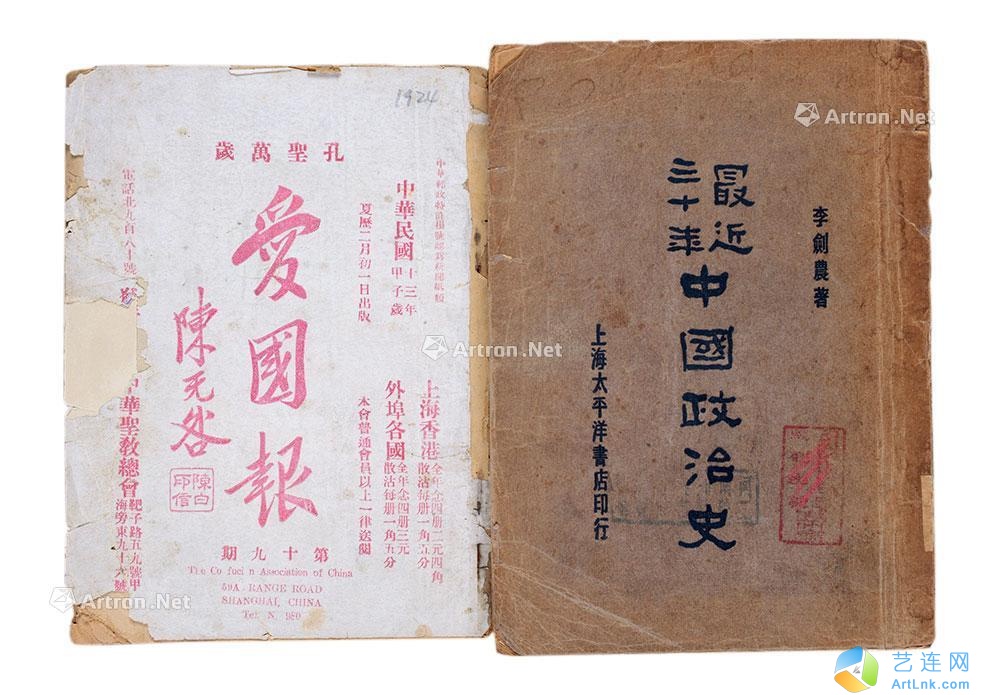 1924
孔聖萬歲
中華民國十三年
甲子歲
夏歷二月初一日出版
愛國報
陳无咎
陳白
印信
電話北九百八十號
中華聖教總會
靶子路五九號甲
海旁東九十六號
上海香港
全年念四册二元四角
散沽每册一角五分
外埠各國
全年念四册三元
散沽每册一角五分
本會普通會員以上一律送閱
第十九期
The Co fuci n Association of China
59A RANGE ROAD
SHANGHAI, CHINA
Tel. N. 980
李劍農著
最近
三十年
中國政治史
上海太平洋書店印行
Artron.Net
Artron.Net
Artron.Net
Artron.Net
艺连网
ArtLnk.com